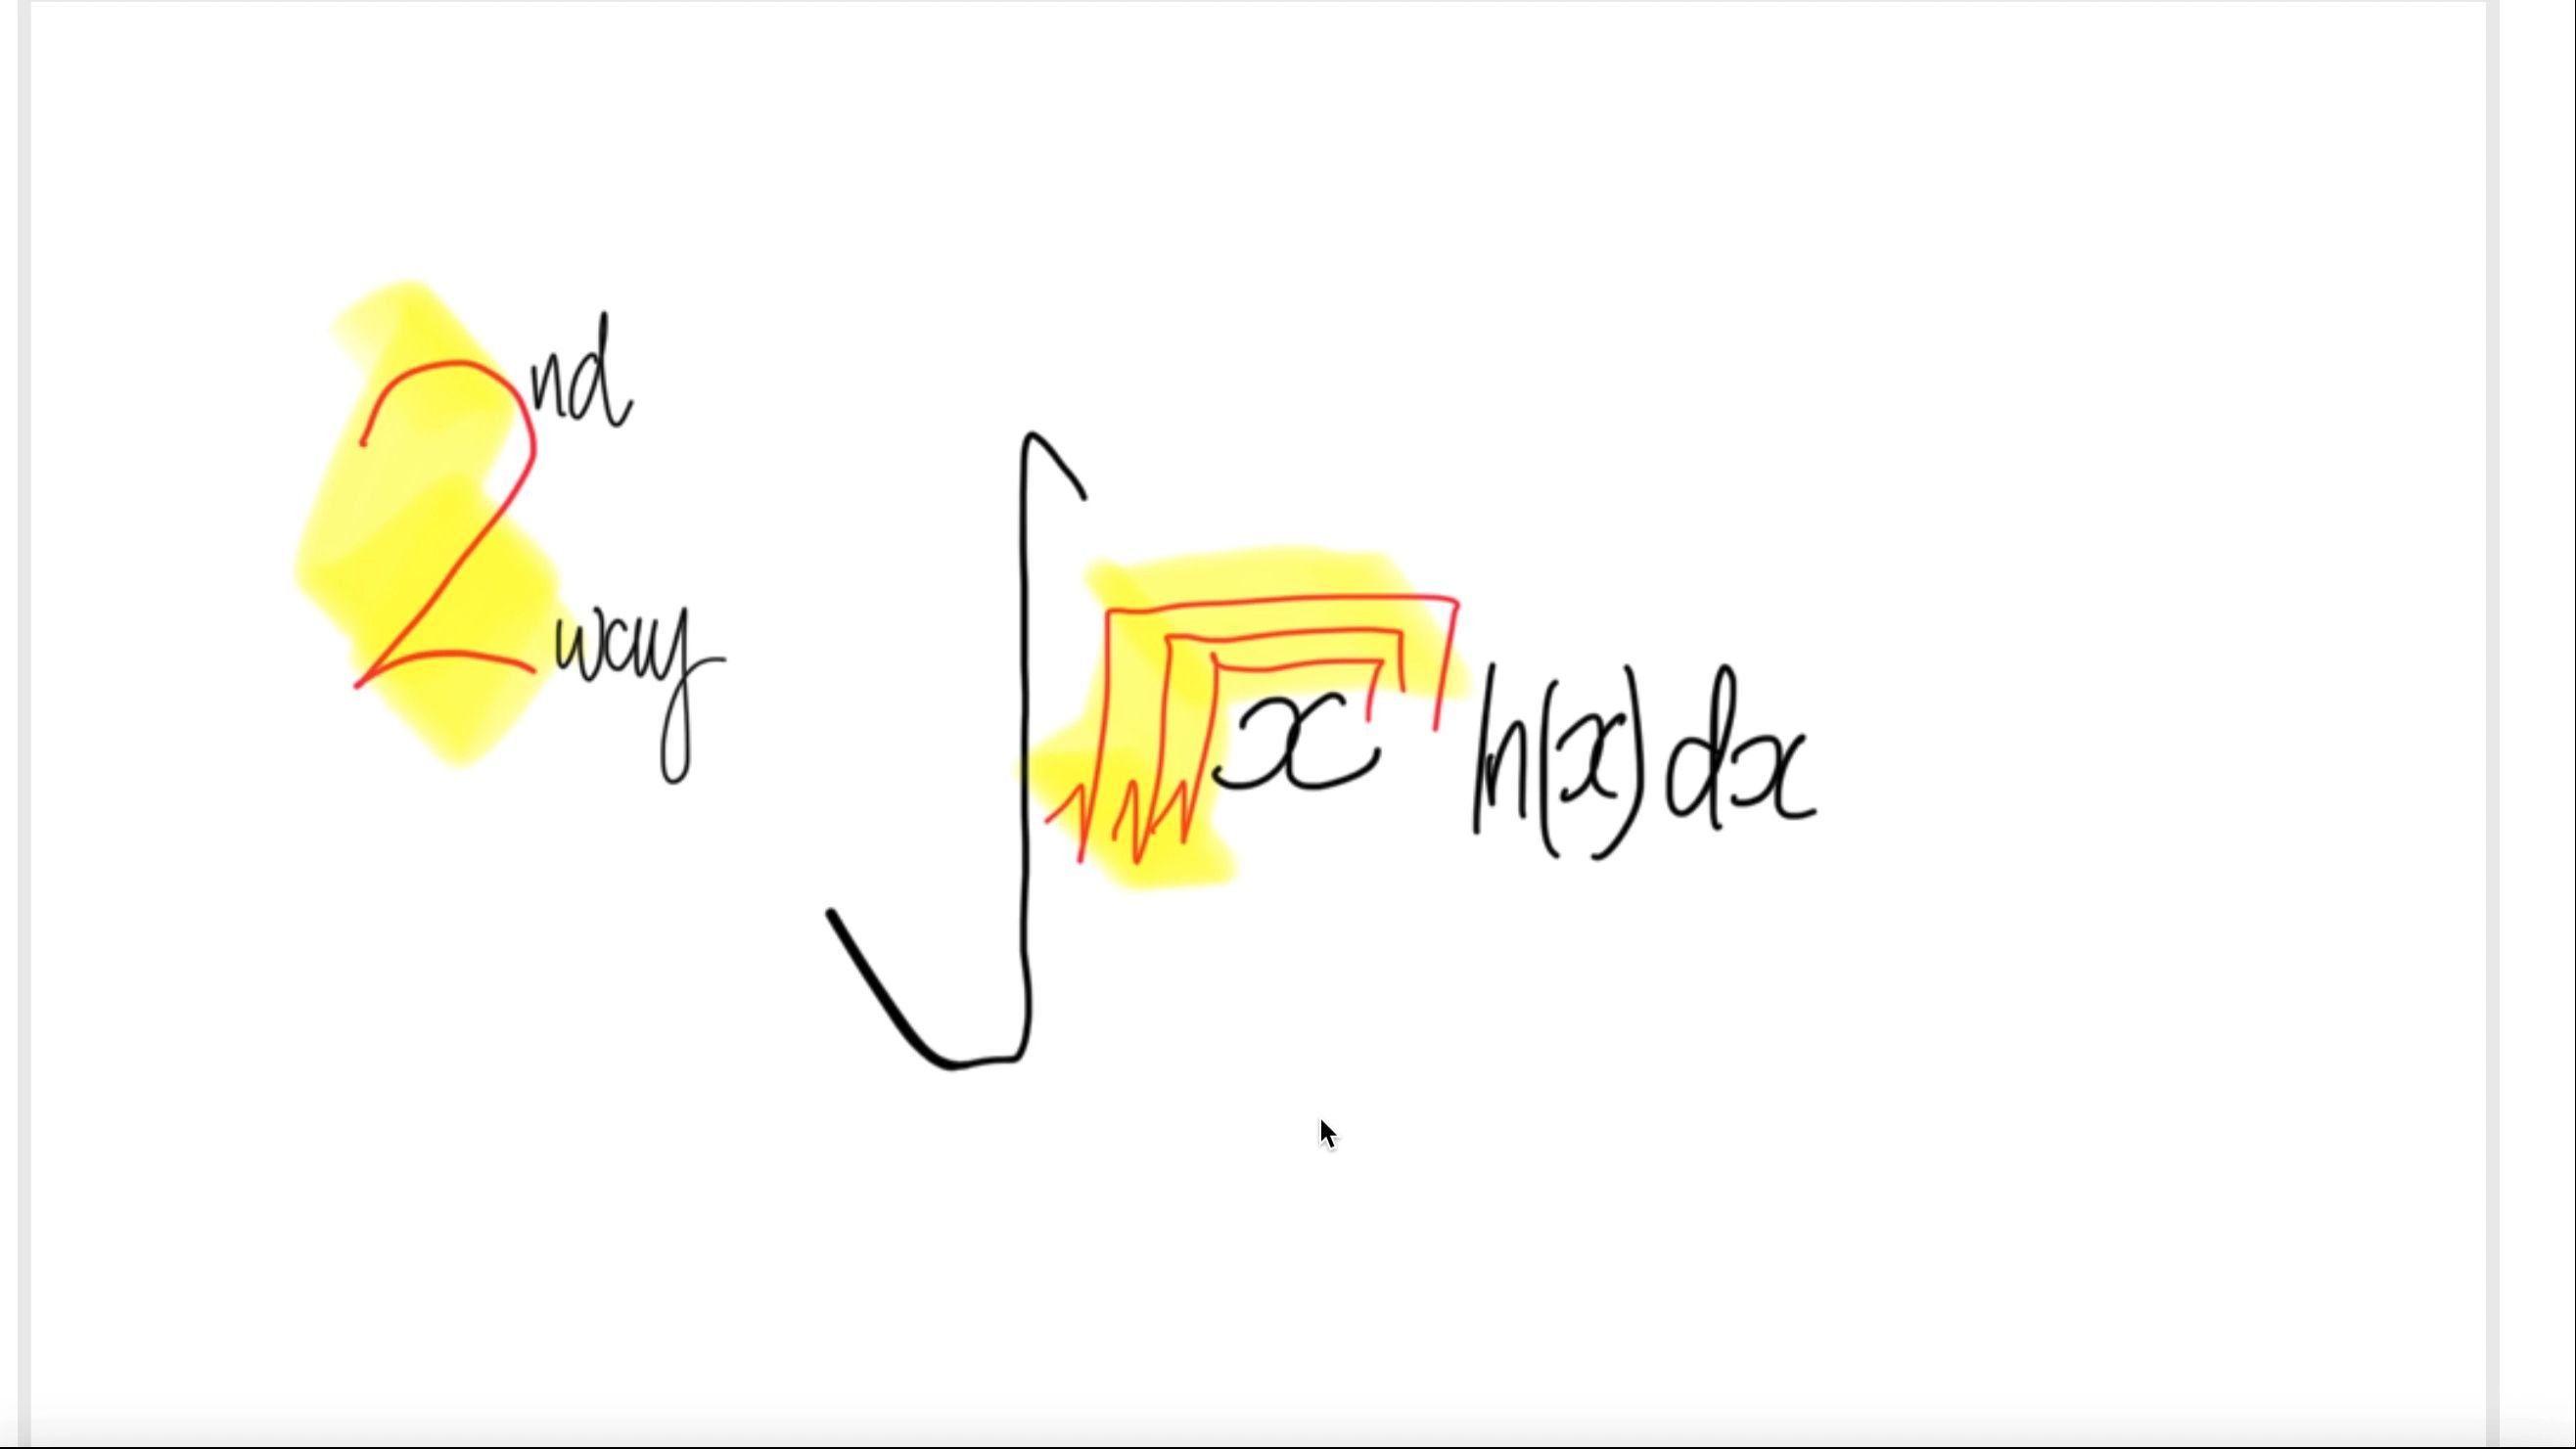 2nd
way
∫√√√x ln(x) dx